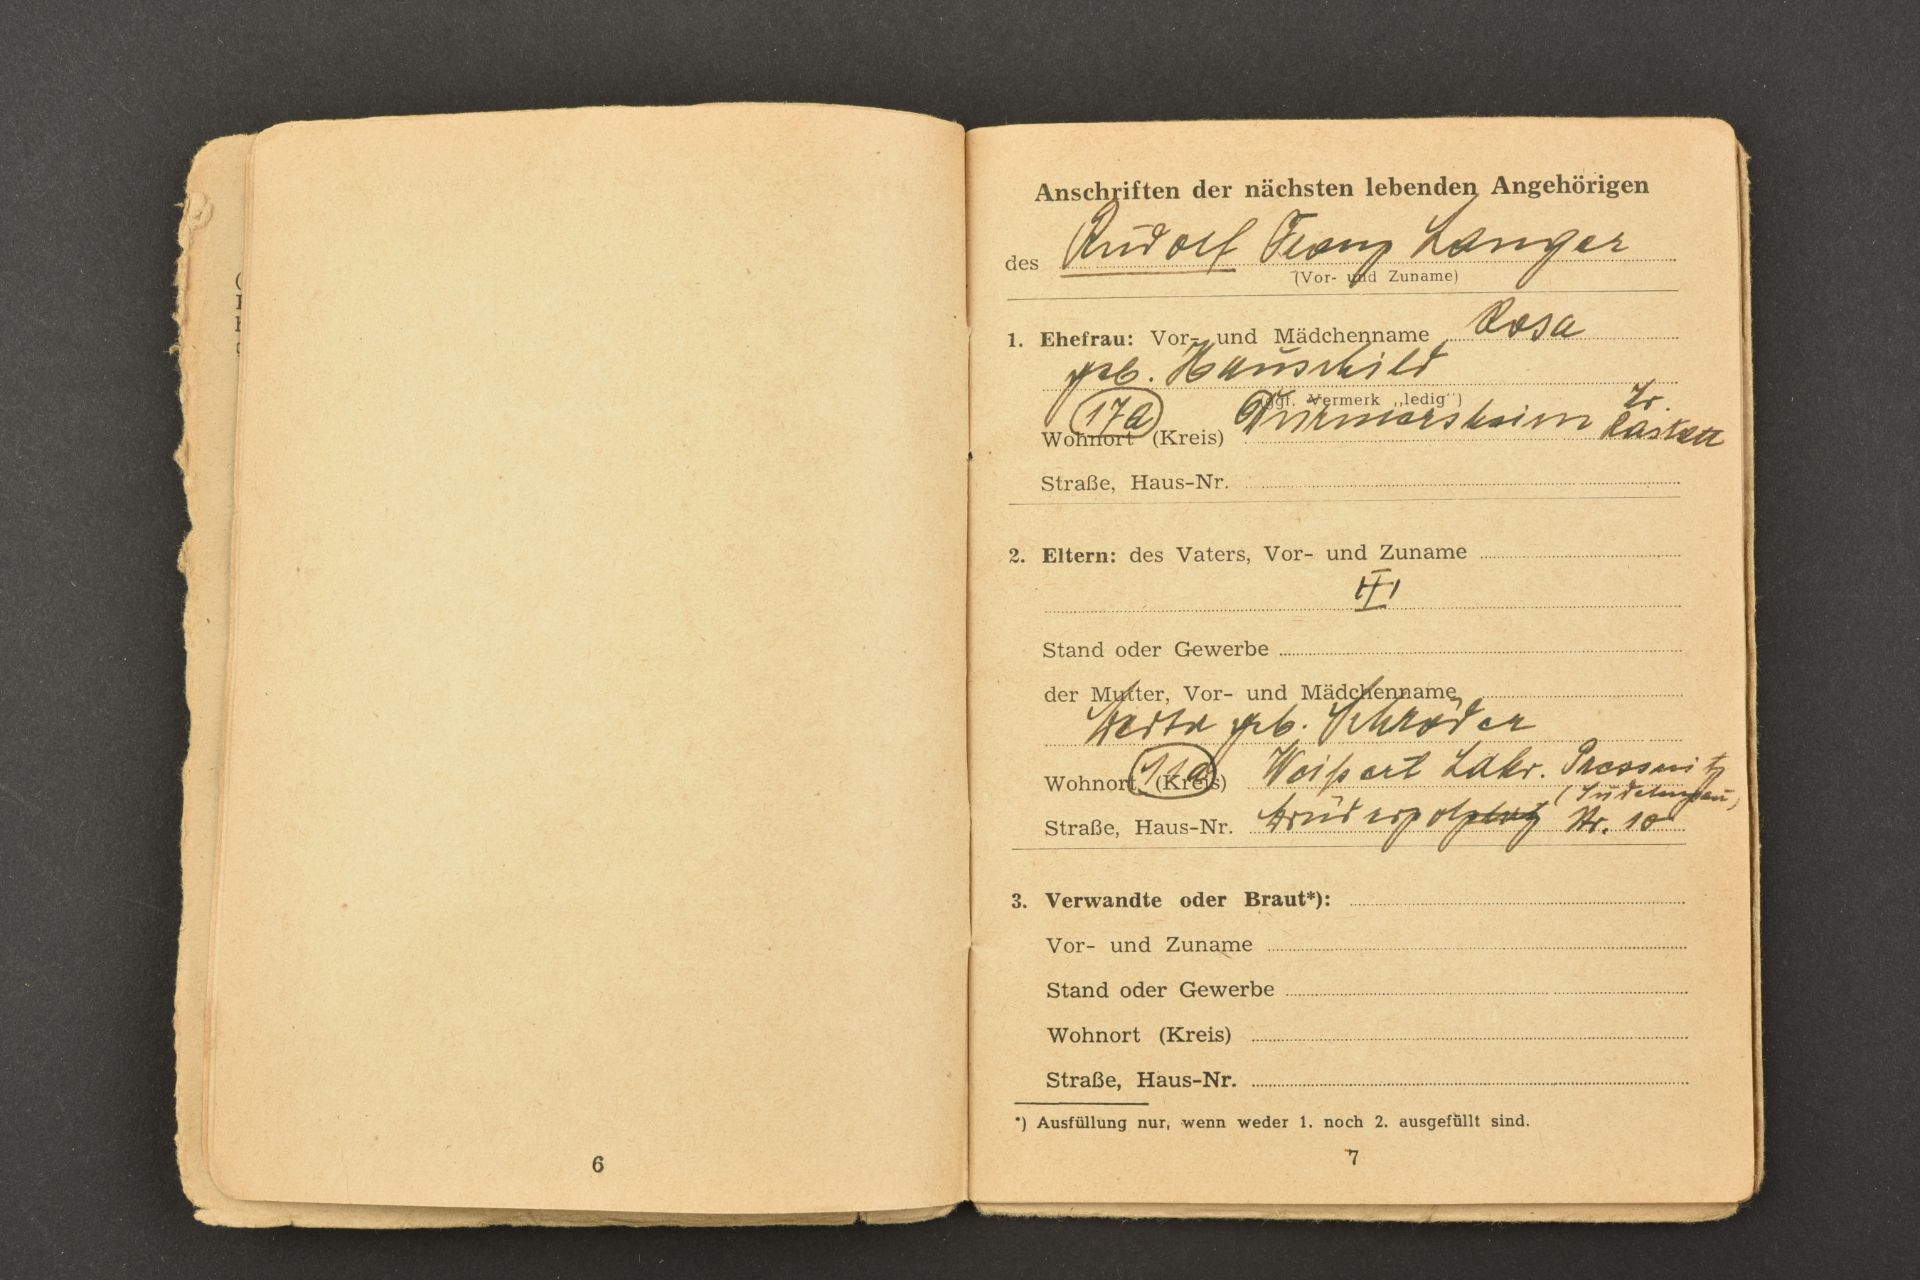 Anschriften der nächsten lebenden Angehörigen
des Rudolf Franz Langer
(Vor- und Zuname)
1. Ehefrau: Vor- und Mädchenname Rosa
geb. Hauschild
(ggf. Vermerk „ledig")
17a
Wohnort (Kreis) Durmersheim Kr. Rastatt
Straße, Haus-Nr.
2. Eltern: des Vaters, Vor- und Zuname
Stand oder Gewerbe
der Mutter, Vor- und Mädchenname
Berta geb. Schröder
Wohnort (Kreis) 11a Weipert Pressnitz
(Sudetengau)
Straße, Haus-Nr. Nr. 10
3. Verwandte oder Braut*):
Vor- und Zuname
Stand oder Gewerbe
Wohnort (Kreis)
Straße, Haus-Nr.
*) Ausfüllung nur, wenn weder 1. noch 2. ausgefüllt sind.
6
7